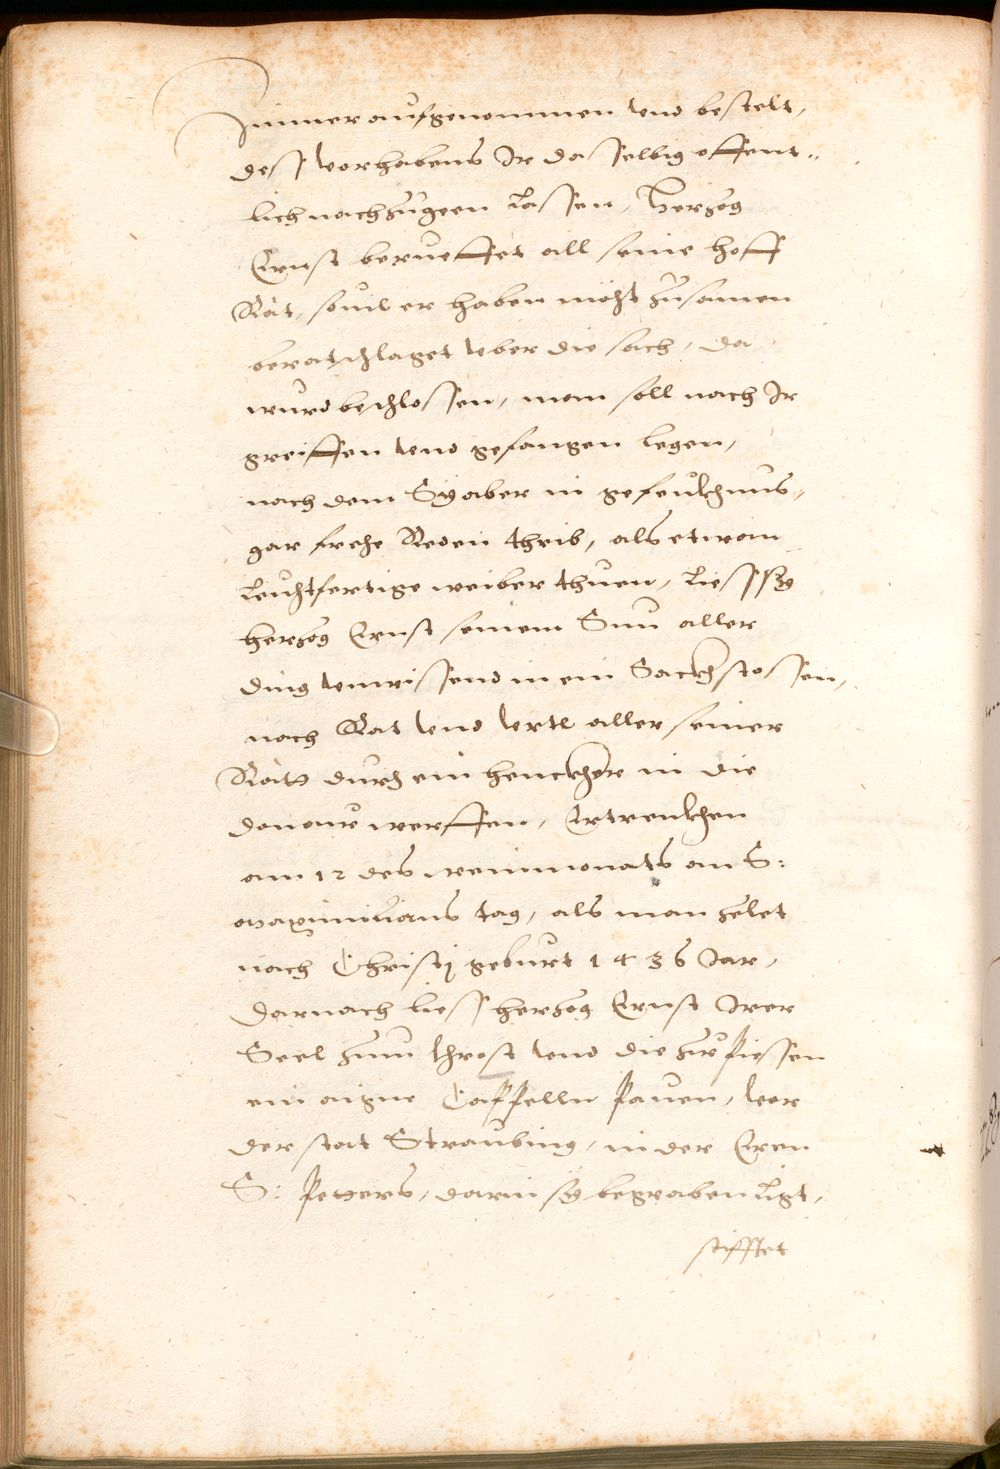 Jnner aufgenommen vnd bestelt,
dess vorhabens Jr dasselbig offent„
lich nachzugeen Lassen, Herzog
Ernst berueffet all seine hoff
Rät, souil er haben möcht zusamen
beratschlaget vber die sach, da
wurd beschlossen, man soll nach Jr
greiffen vnd gefangen legen,
nach dem Sy aber in gefenckhnus,
gar freche Reden thrib, als etwan
Leuchtfertige weiber thuen, Liess sy
herzog Ernst seinem Sun aller
ding vnwissend in ein Sackh stossen,
nach Rat vnd vrtl aller seiner
Rätt durch ein henckher in die
donaw werffen, Ertrenckhen
am 12 des weinmonats an S:
Maximilians tag, als man zelet
nach Christj geburt 1436 Jar,
Darnach liess herzog Ernst Jrer
Seel zum throst vnd die zu piessen
ein aigne Cappelln pauen, vor
der stat Straubing, in der Eren
S: petters, darin sy begraben ligt,
stifftet